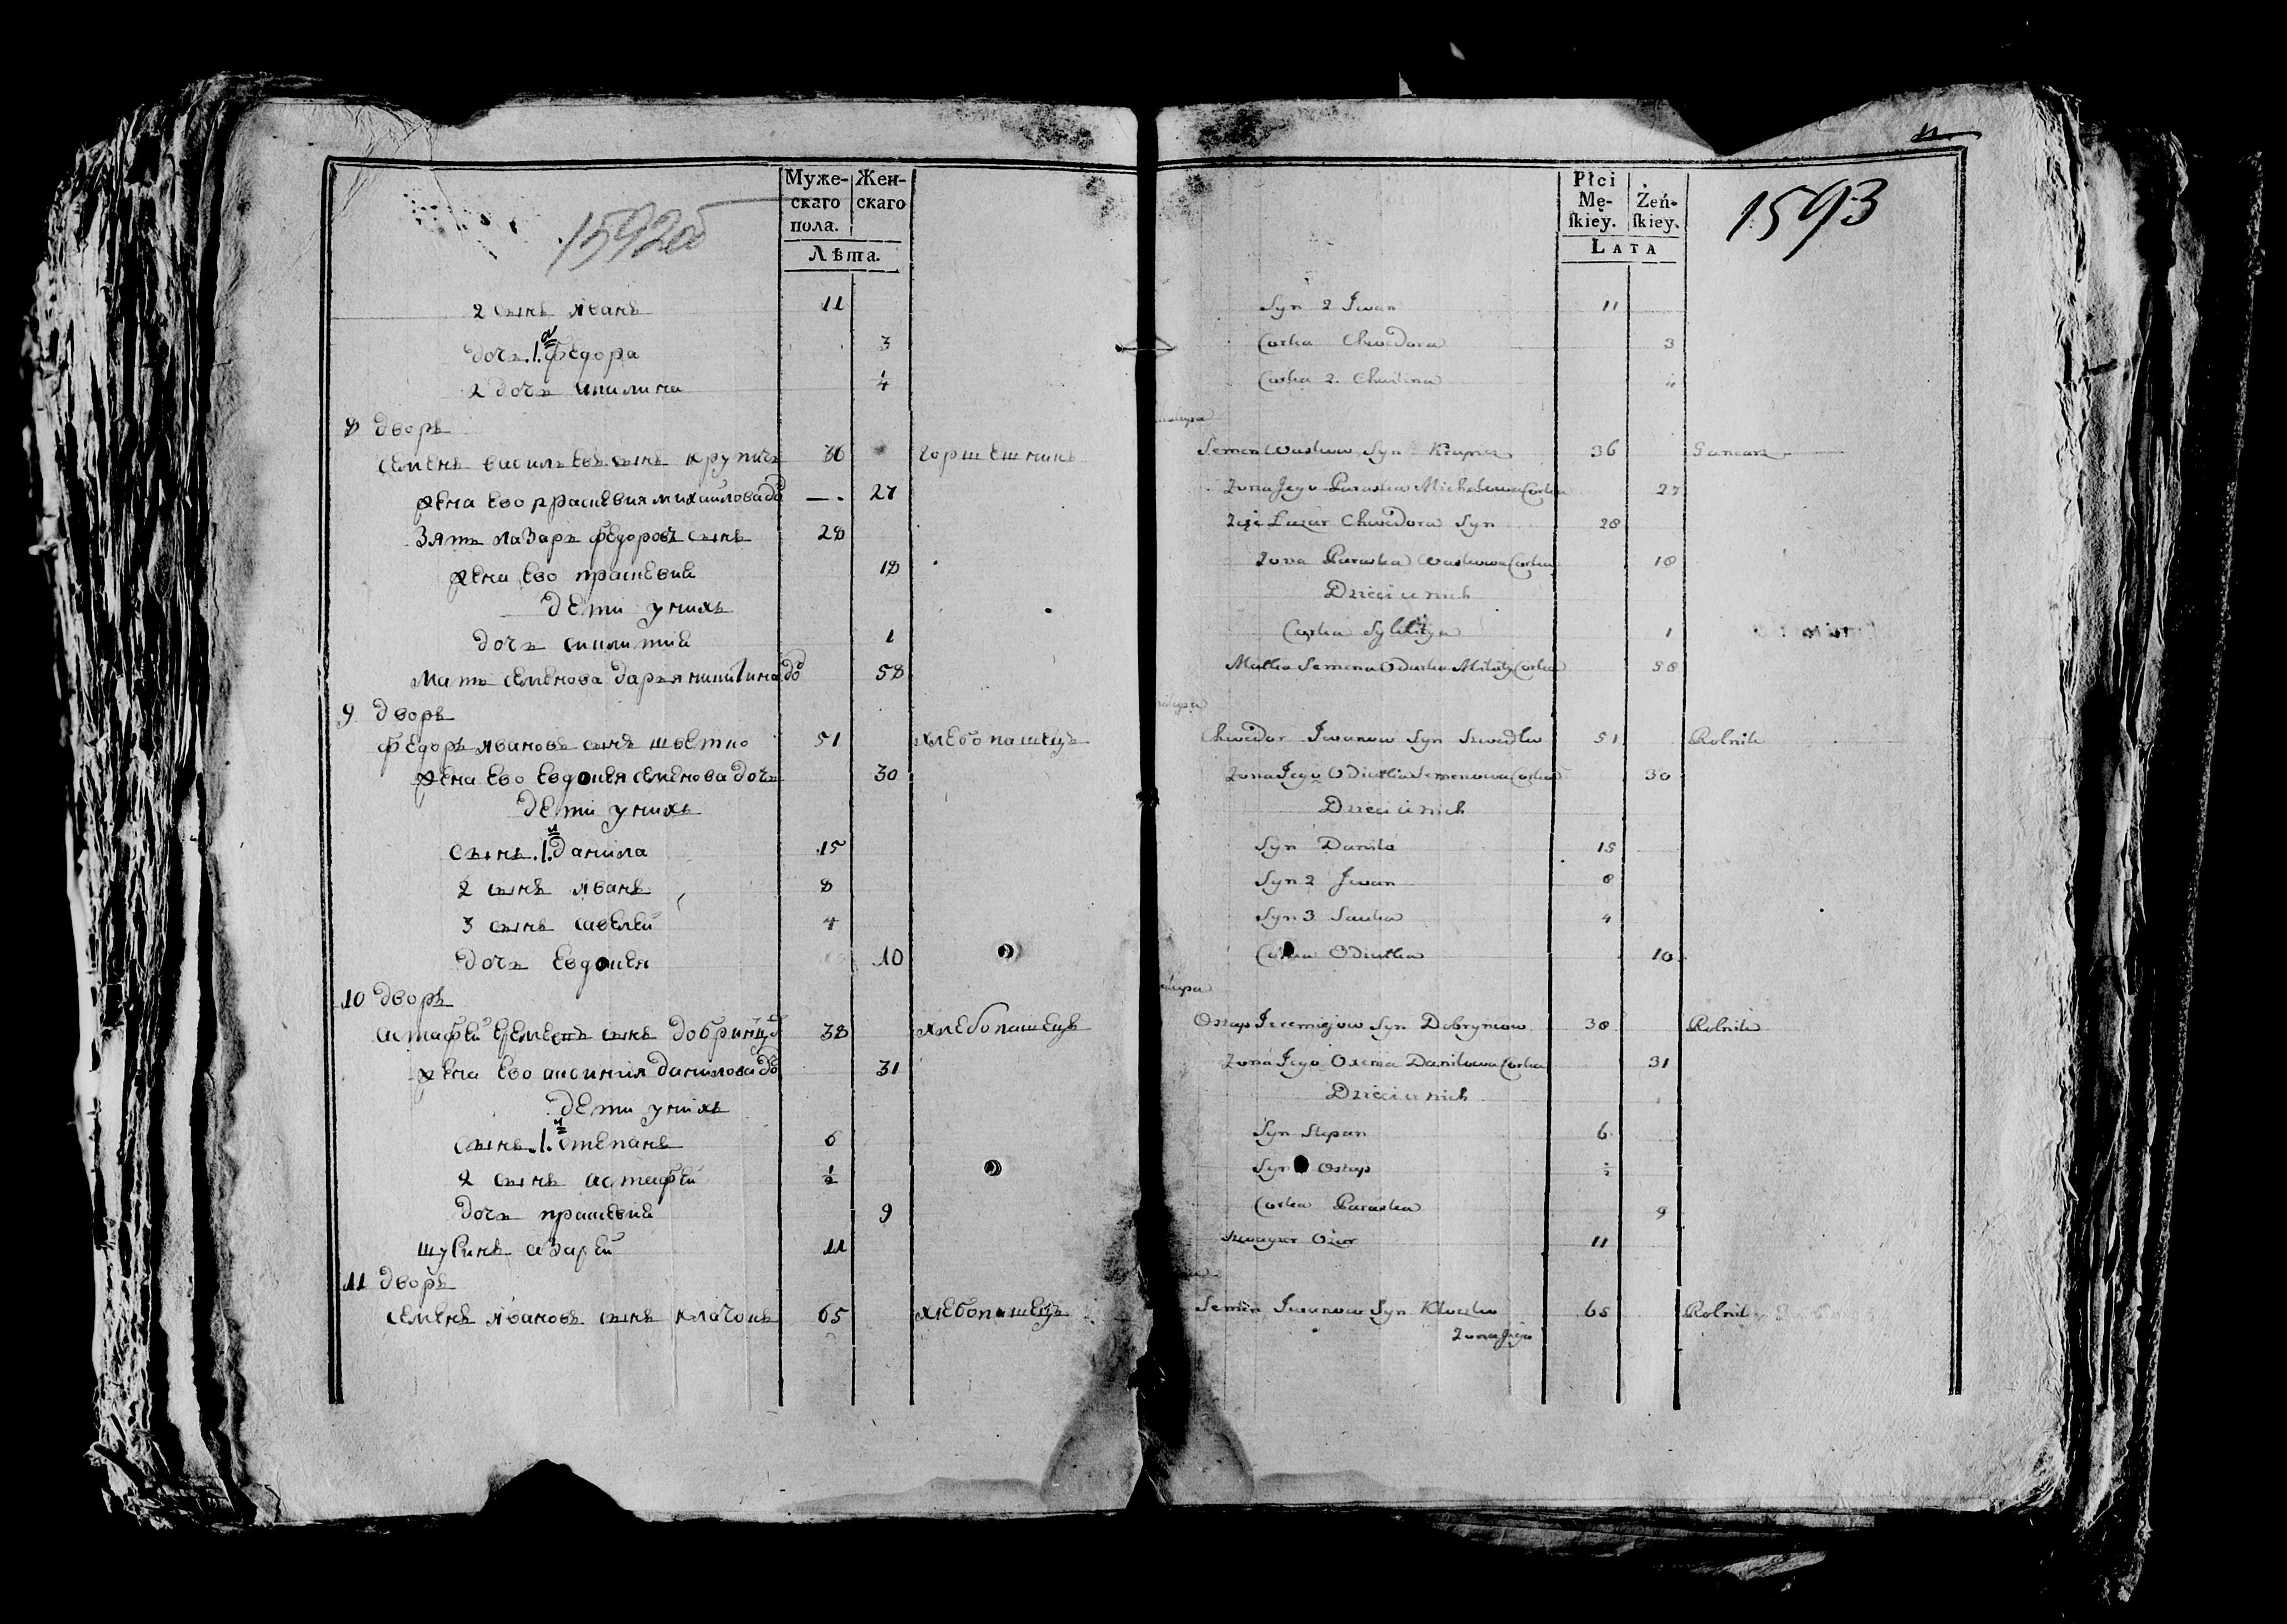 1592об
Муже- Жен-
скаго скаго
пола.
Лѣта.
2 сынъ иванъ 11
дочь .1.я федора 3
2 дочь акилина 4
8 дворъ
семенъ васильевъ сынъ крупичъ 36 горшешникъ
жена ево прасковия михайлова до —. 27
зять лазарь федоровъ сынъ 28
жена ево прасковия 18
дети у нихъ
дочь 1
мать семенова дарья никитина до 58
9 дворъ
федоръ ивановъ сынъ шветко 51 хлебопашецъ
жена ево евдокия семенова дочь 30
дети у нихъ
сынъ .1.й данила 15
2 сынъ иванъ 8
3 сынъ савелей 4
дочь евдокея 10
10 дворъ
астафей сынъ 38 хлебопашецъ
жена ево аксиния данилова до 31
дети у нихъ
сынъ .1.й степанъ 6
2 сынъ астафей ½
дочь прасковия 9
шуринъ азарей 11
11 дворъ
семенъ ивановъ сынъ клачокъ 65 хлебопашецъ
11
1593
Płci
Mę- Żeń-
ſkiey. ſkiey.
LATA
Syn 2 Iwan 11
Corka Chwedora 3
Corka 2. 4
Semen Waskow Syn Krupicz 36 Gancarz
Zona Jego Paraska Michałowa Corka 27
Zięć Łazar Chwedora Syn 28
Zona Paraska Waskowa Corka 18
Dzieci u nich
Corka 1
Matka Semena Odarka Mikity Corka 58
Chwedor Iwanow Syn Szwedko 51 Rolnik
Zona Jego Odiutka Semenowa Corka 30
Dzieci u nich
Syn Daniło 15
Syn 2 Iwan 8
Syn 3 Sawka 4
Corka Odiutka 10
Ostap Jeremiejow Syn Dobryniow 38 Rolnik
Zona Jego Oxena Daniłowa Corka 31
Dzieci u nich
Syn Stepan 6
Syn Ostap ½
Corka Paraska 9
Szwagier Ozar 11
Semen Iwanow Syn Kłoczko 65 Rolnik
Zona Jego